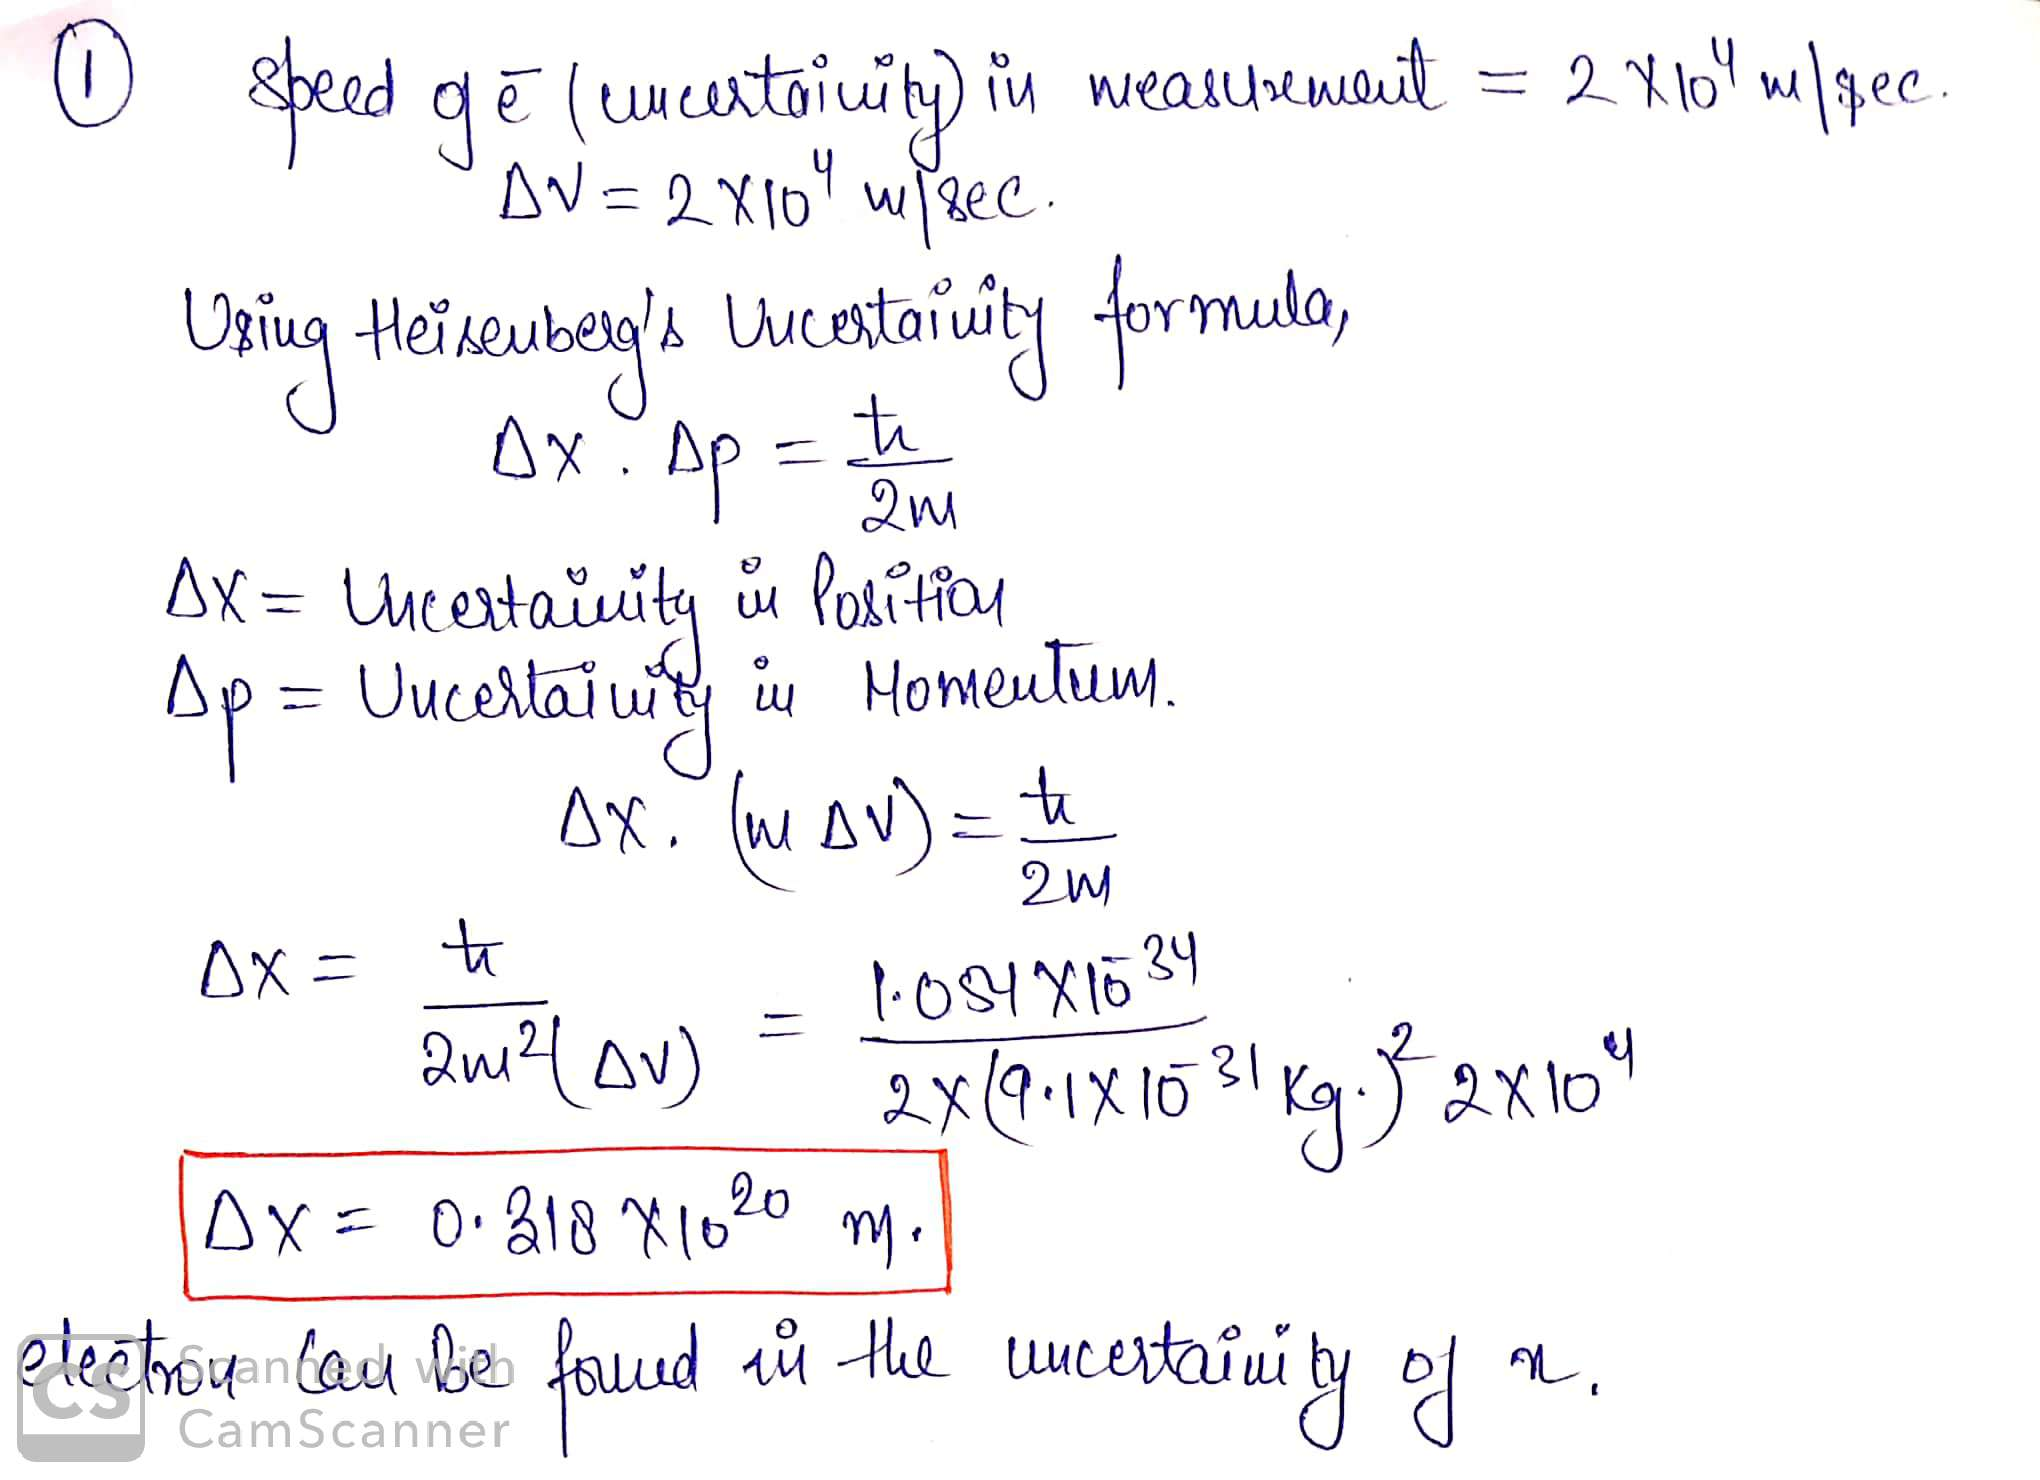 ① Speed of ē (uncertainity) in measurement = 2 X 10⁴ m/sec.
ΔV = 2 X 10⁴ m/sec.
Using Heisenberg's Uncertainity formula,
ΔX . Δp = ħ/2m
ΔX = Uncertainity in Position
Δp = Uncertainity in Momentum.
ΔX. (m ΔV) = ħ/2m
ΔX = ħ/2m²(ΔV) = 1.054 X 10⁻³⁴/2 x (9.1 X 10⁻³¹ Kg.)² 2 X 10⁴
ΔX = 0.318 X 10²⁰ m.
electron can be found in the uncertainity of x.
CS Scanned with
CamScanner